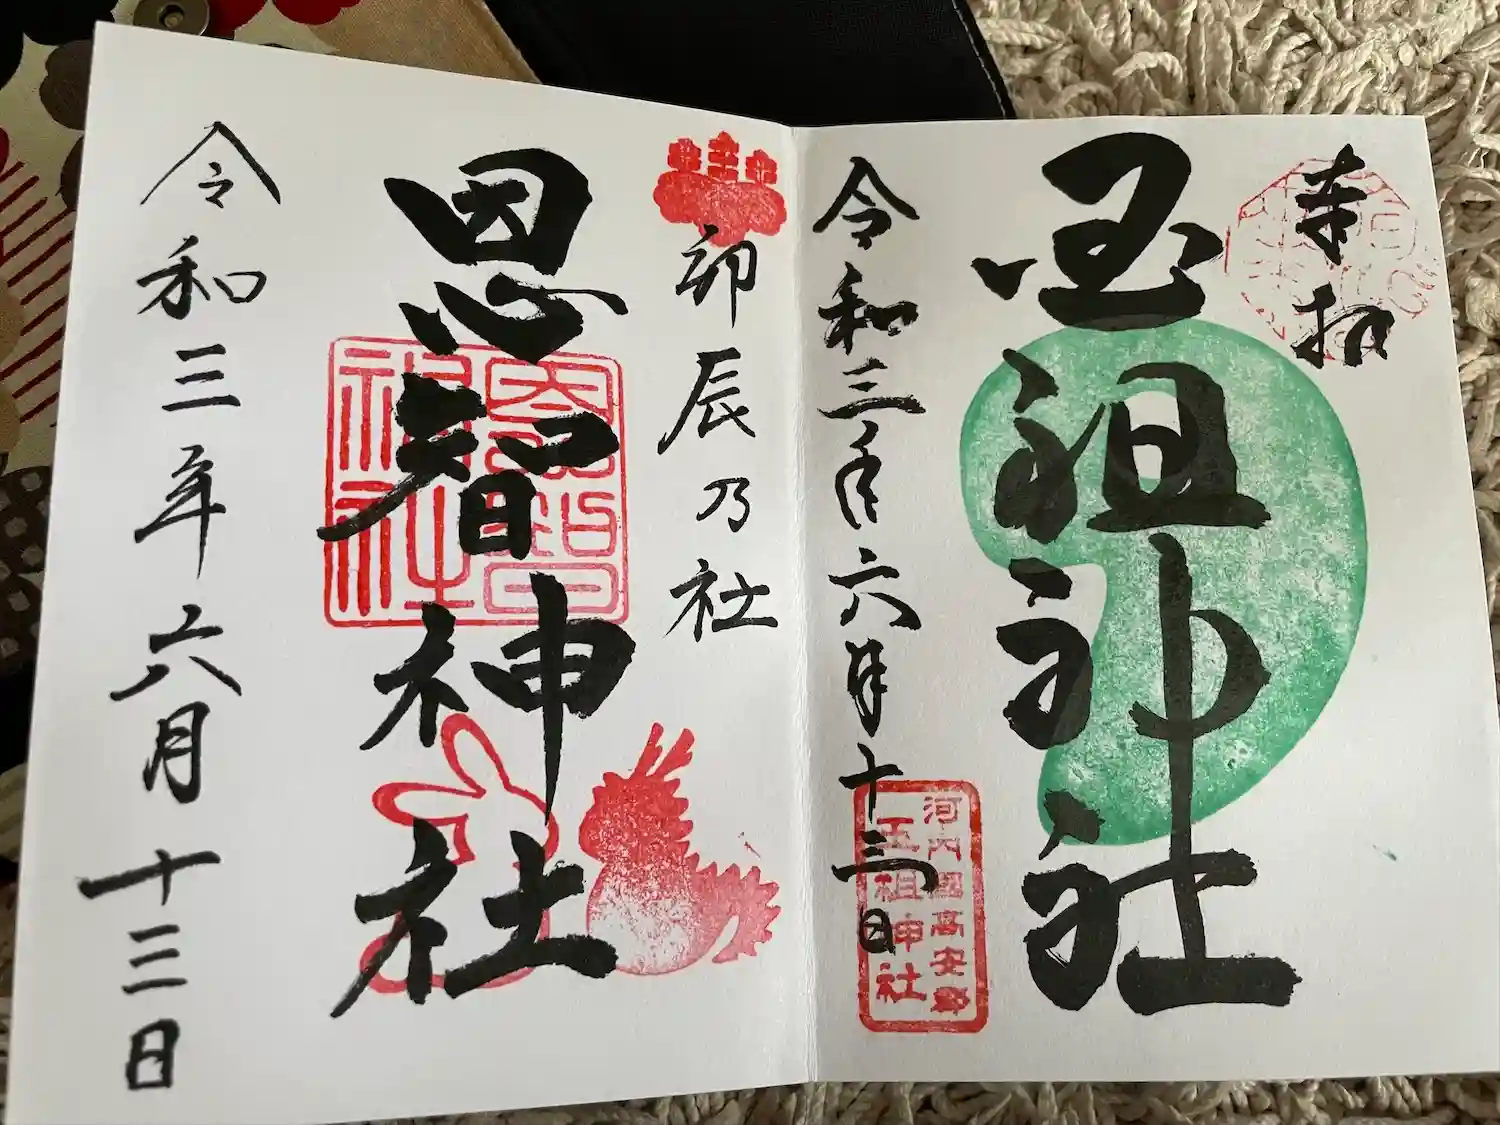 奉拝
玉祖神社
令和三年六月十三日
河内國高安郡
玉祖神社
卯辰乃社
恩智神社
恩智
神社
令和三年六月十三日